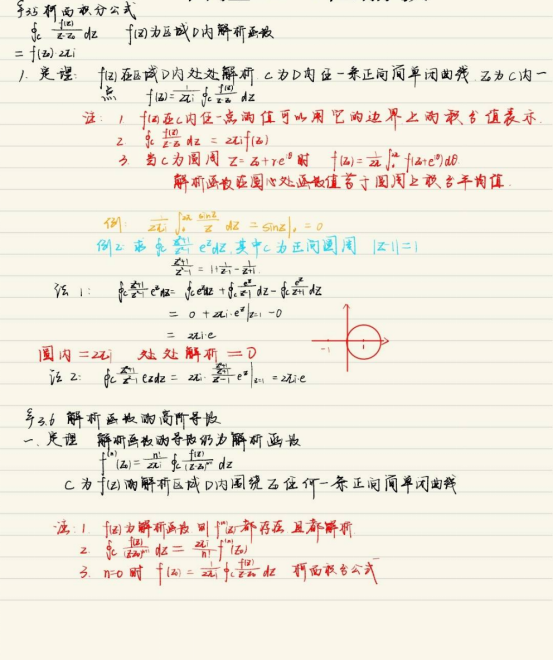 §3.5 柯西积分公式
∮c f(z)/(z-z₀) dz f(z)为区域D内解析函数
= f(z₀)·2πi
1. 定理: f(z)在区域D内处处解析 C为D内任一条正向简单闭曲线 z₀为C内一
点 f(z₀) = 1/2πi ∮c f(z)/(z-z₀) dz
注: 1 f(z)在C内任一点的值可以用它的边界上的积分值表示.
2 ∮c f(z)/(z-z₀) dz = 2πi f(z₀)
3. 当C为圆周 z = z₀+re^iθ 时 f(z₀) = 1/2π ∫₀^2π f(z₀+re^iθ)dθ
解析函数在圆心处函数值等于圆周上积分平均值.
例: sinz/z dz = sinz|₀ = 0
例2: 求 ∮c (z²+1)/(z²-1) e^z dz, 其中C为正向圆周 |z-1|=1
(z²+1)/(z²-1) = 1 + 1/(z-1) - 1/(z+1)
法1: ∮c (z²+1)/(z²-1) e^z dz = ∮c e^z dz + ∮c e^z/(z-1) dz - ∮c e^z/(z+1) dz
= 0 + 2πi·e^z|z=1 - 0
= 2πi·e
-1 1
圆内 = 2πi 处处解析 = 0
法2: = 2πi·e
§3.6 解析函数的高阶导数
一. 定理 解析函数的导数仍为解析函数
f⁽ⁿ⁾(z₀) = n!/2πi ∮c f(z)/(z-z₀)ⁿ⁺¹ dz
C为f(z)的解析区域D内围绕z₀任何一条正向简单闭曲线
注: 1. f(z)为解析函数 则 f⁽ⁿ⁾(z)都存在且都解析.
2. ∮c f(z)/(z-z₀)ⁿ⁺¹ dz = 2πi/n! f⁽ⁿ⁾(z₀)
3. n=0时 f(z₀) = 1/2πi ∮c f(z)/(z-z₀) dz 柯西积分公式